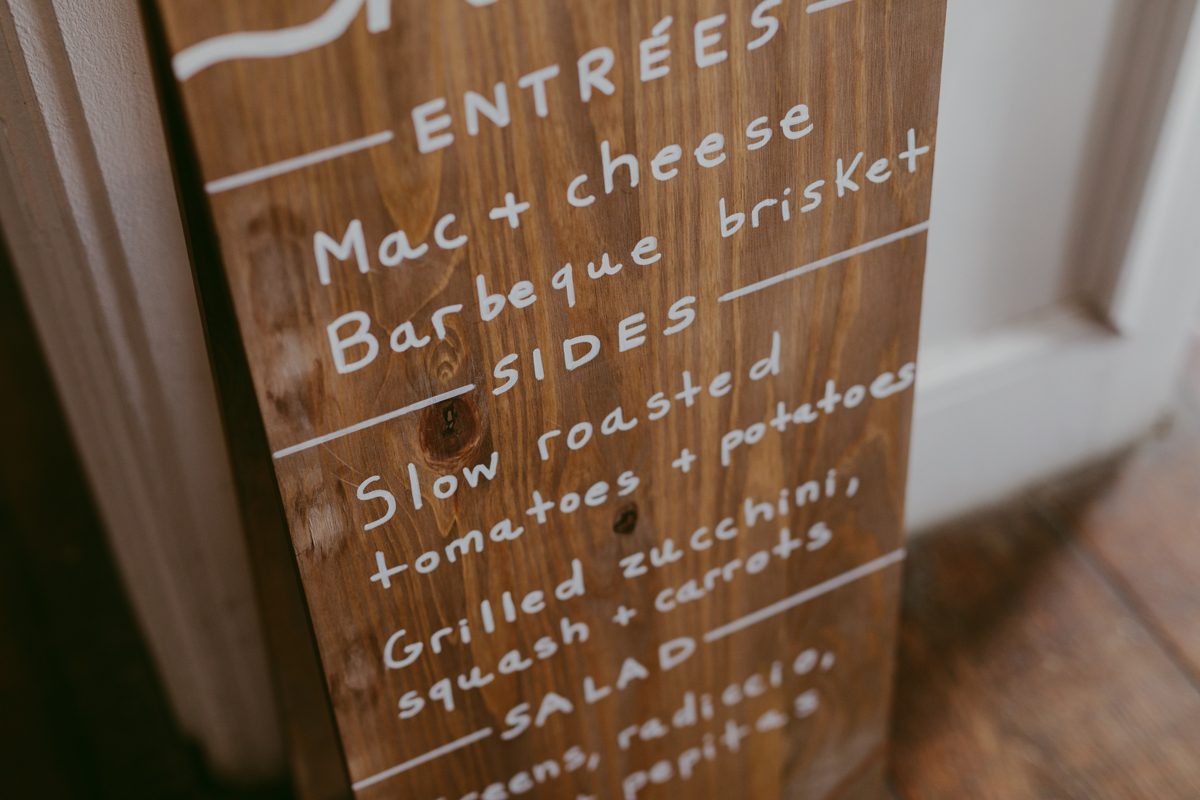 ENTRÉES
Mac + cheese
Barbeque brisket
SIDES
Slow roasted
tomatoes + potatoes
Grilled zucchini,
squash + carrots
SALAD
radiccio,
pepitas